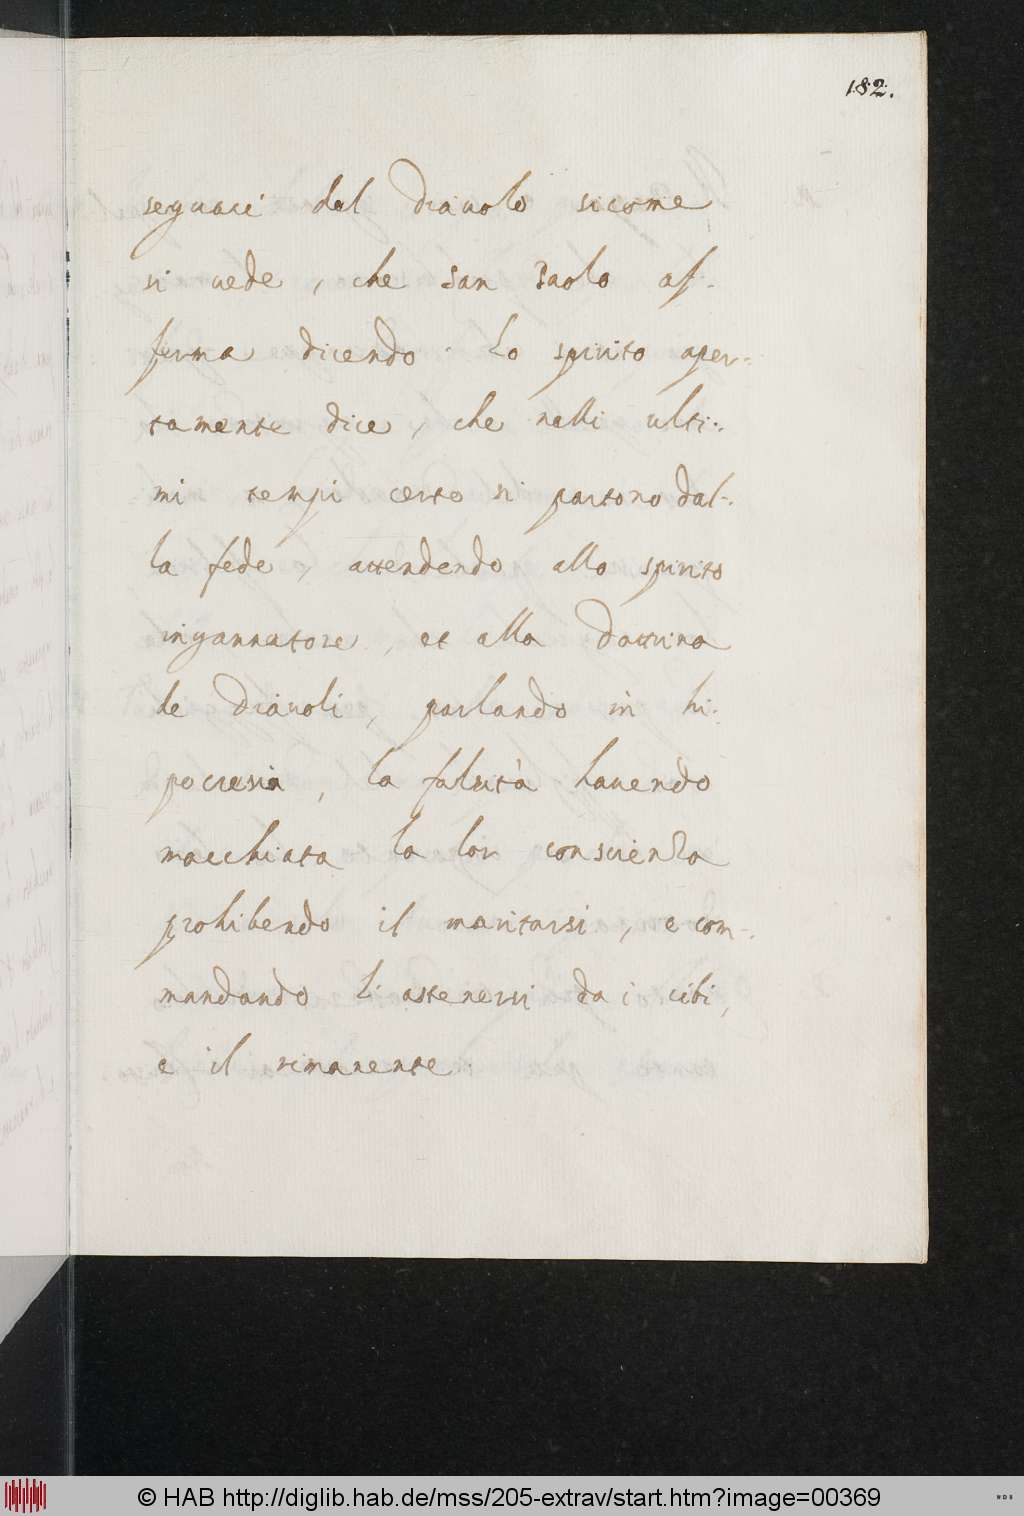 182.
seguaci del diauolo sicome
si uede, che San Paolo af-
ferma dicendo. Lo spirito aper-
tamente dice, che nelli ulti-
mi tempi certo si partono dal-
la fede, attendendo allo spirito
ingannatore, et alla dottrina
de diauoli, parlando in hi-
pocresia, la falsità hauendo
macchiata la lor conscienza
prohibendo il maritarsi, e com-
mandando l'astenersi da i cibi,
e il rimanente.
© HAB http://diglib.hab.de/mss/205-extrav/start.htm?image=00369